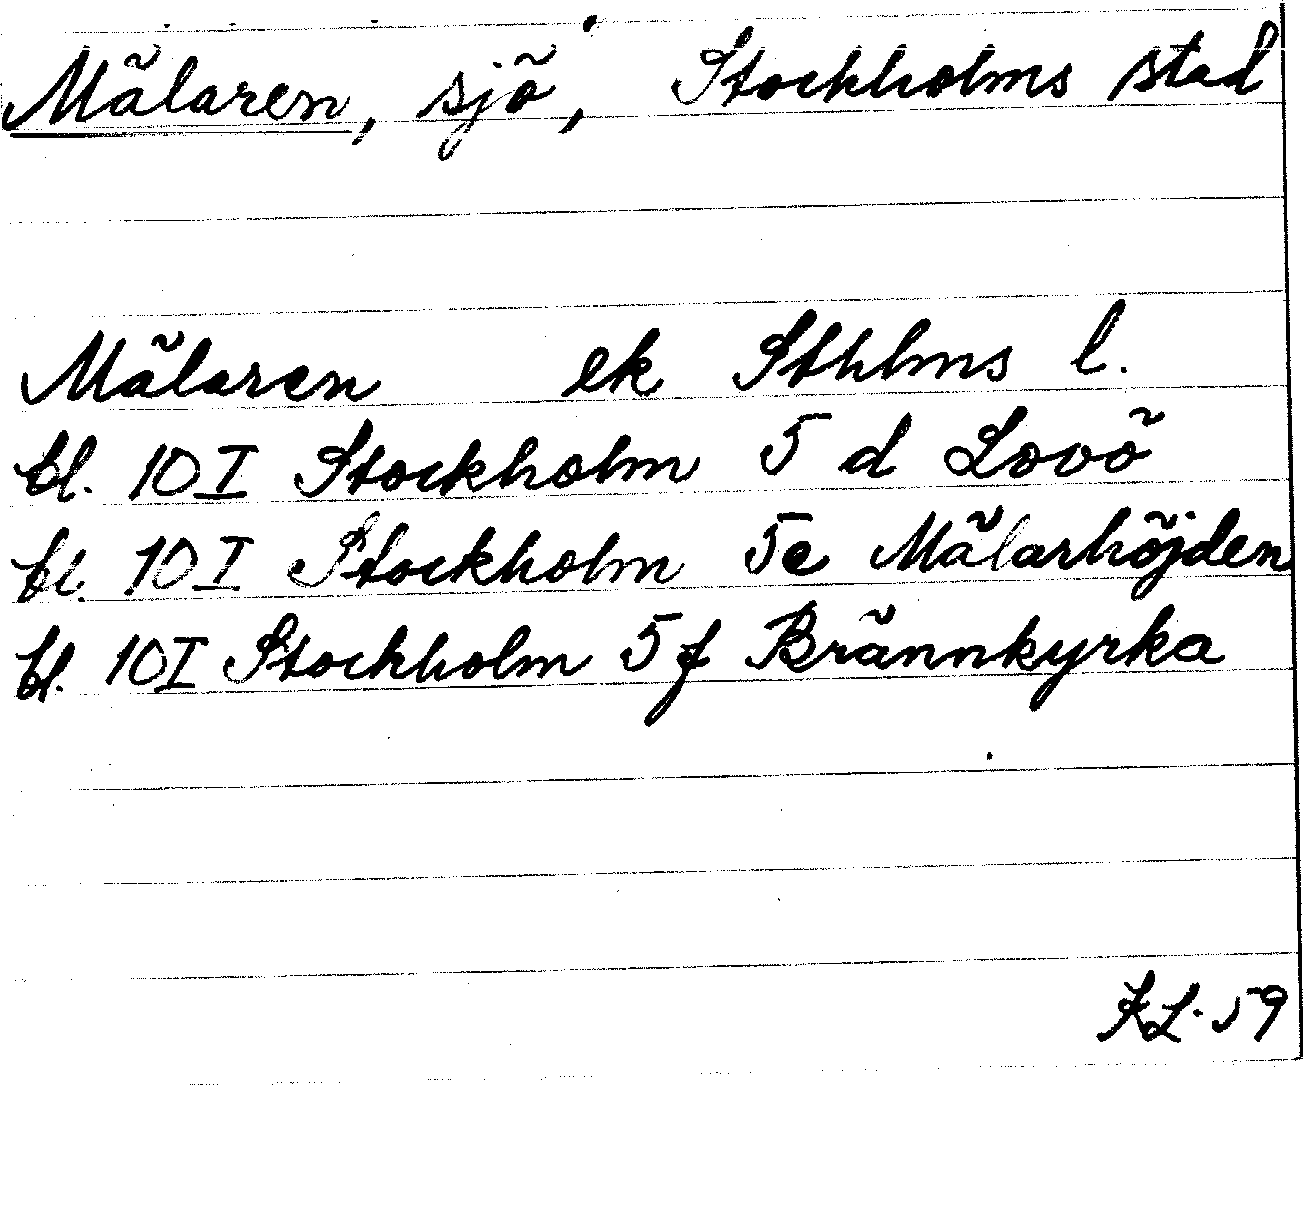 Mälaren, sjö, Stockholms stad
Mälaren ek Sthlms l.
bl. 10 I Stockholm 5 d Lovö
bl. 10 I Stockholm 5e Mälarhöjden
bl. 10 I Stockholm 5f Brännkyrka
KL. 59